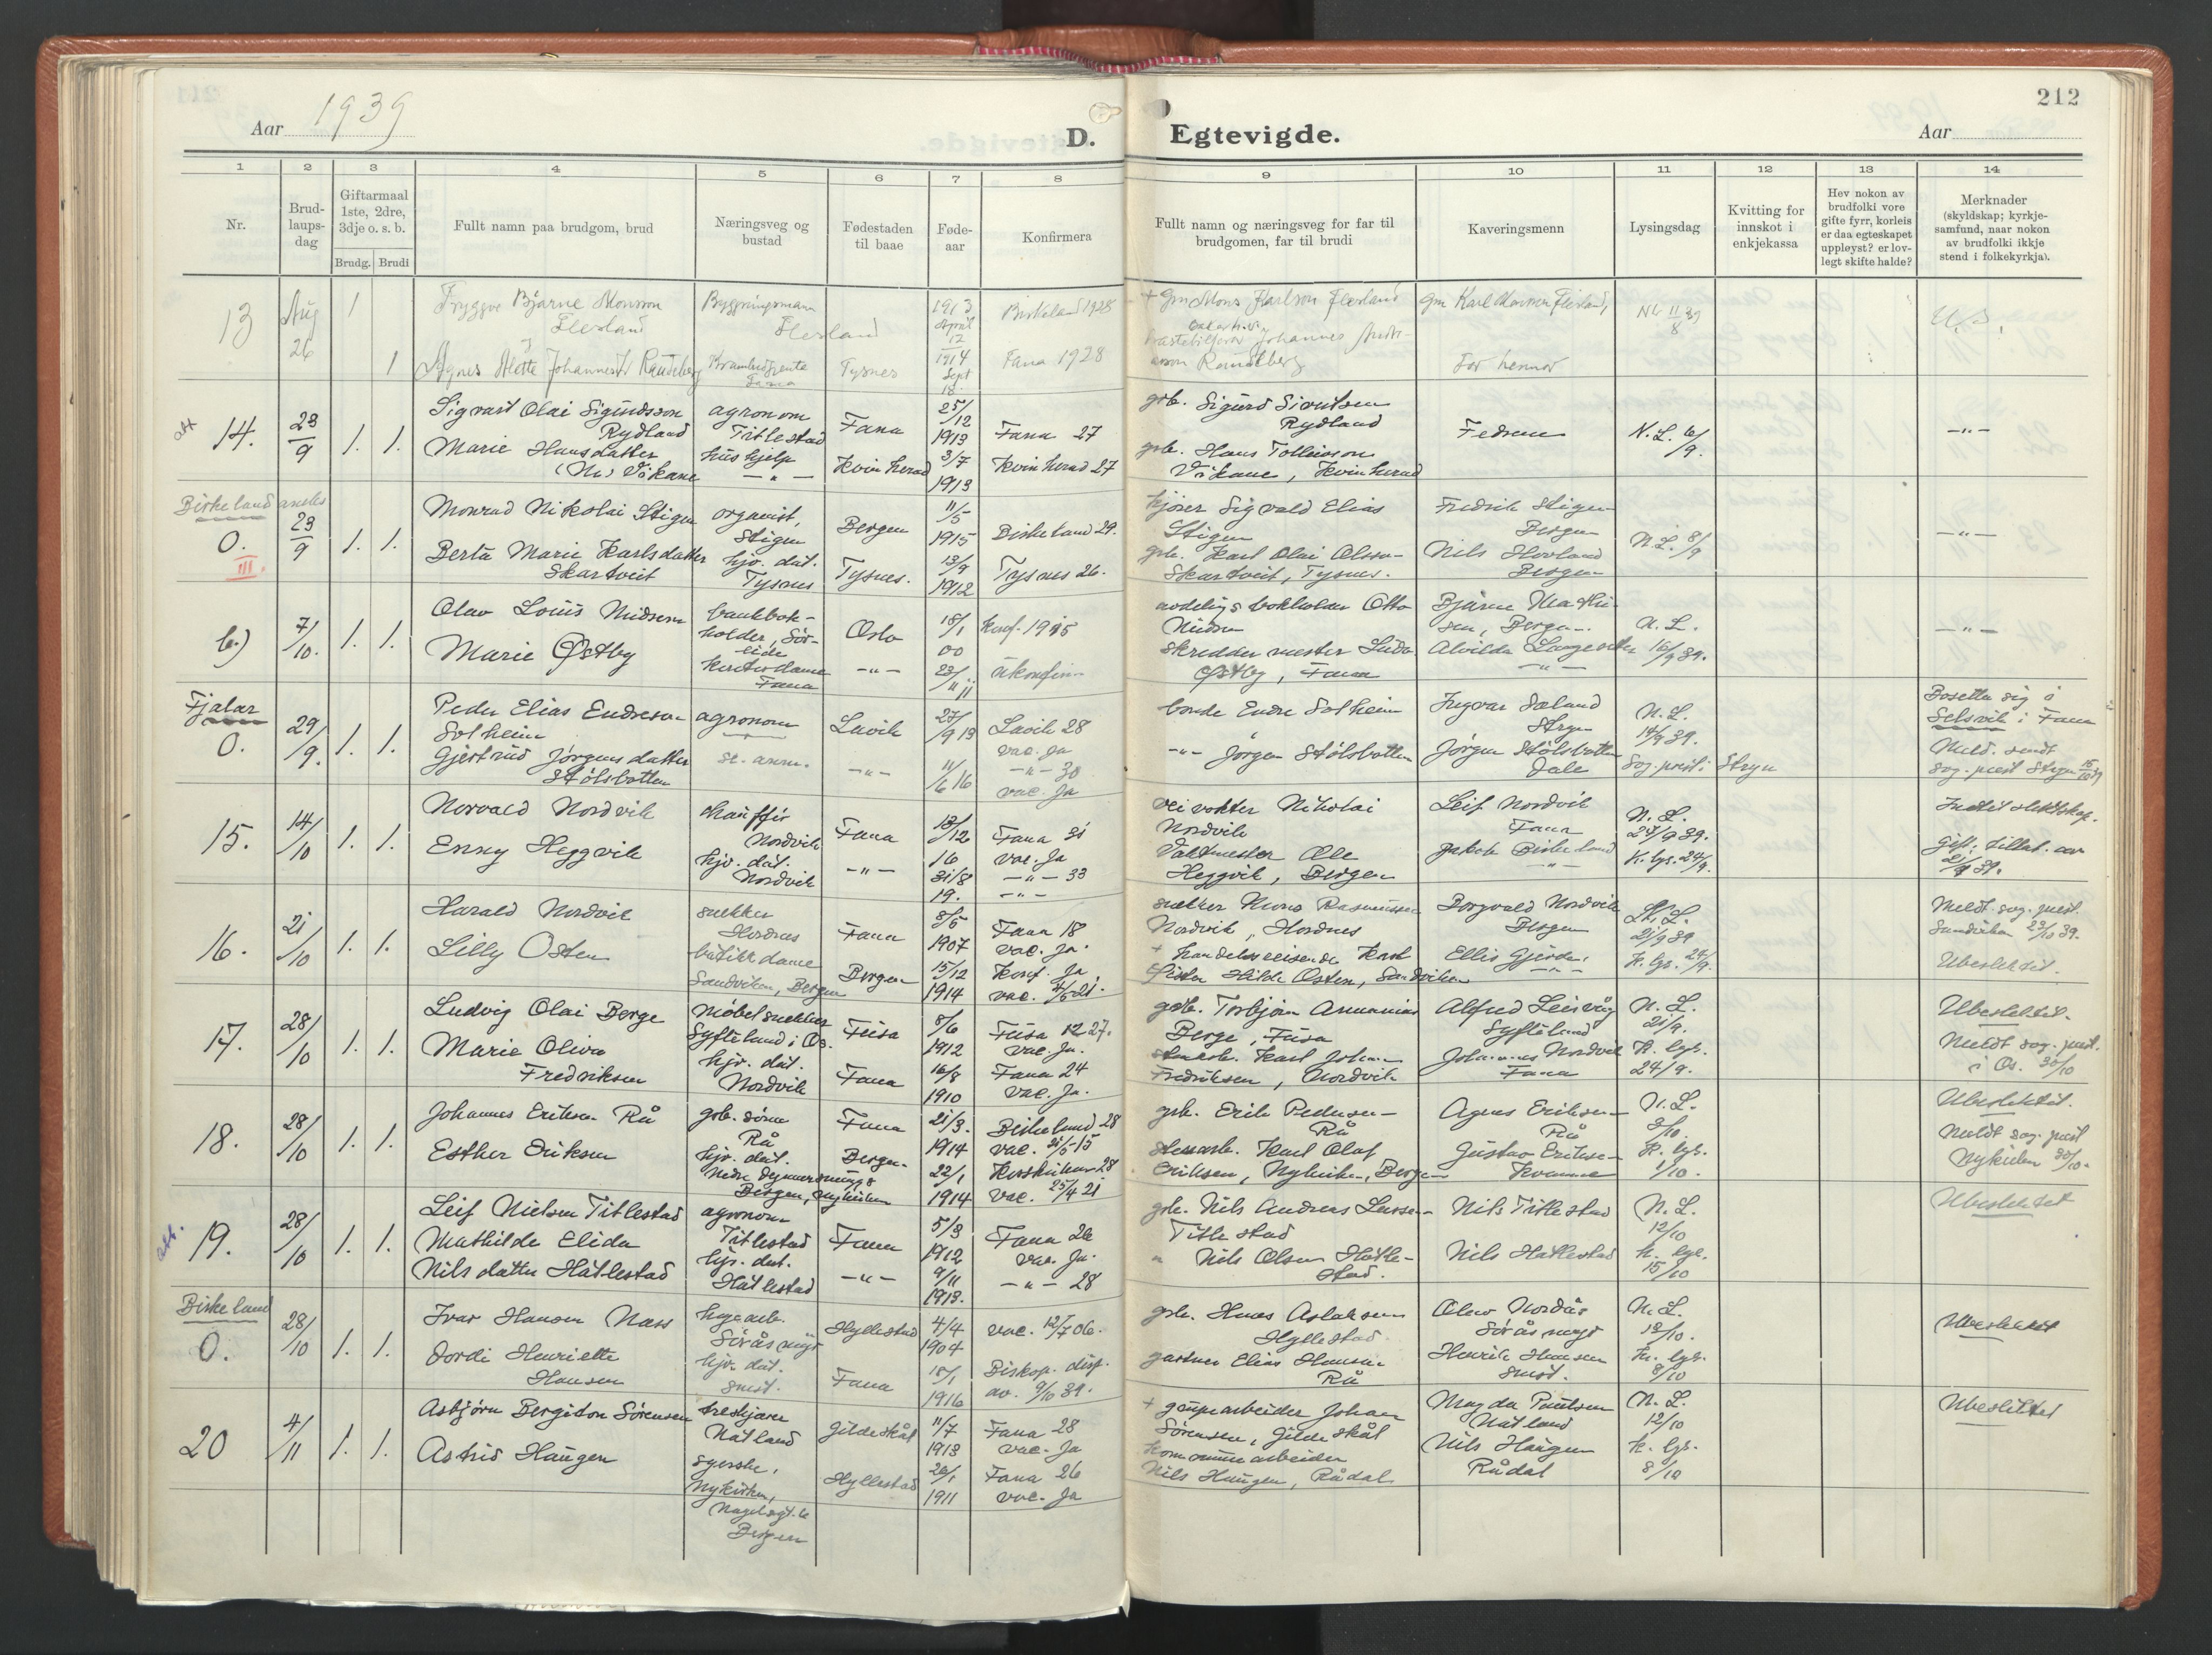 212
Aar 1939
D. Egtevigde.
Aar
1 2 3 4 5 6 7 8 9 10 11 12 13 14
Nr.
Brud-
laups-
dag
Giftarmaal
1ste, 2dre,
3dje o. s. b.
Brudg. Brudi
Fullt namn paa brudgom, brud
Næringsveg og
bustad
Fødestaden
til baae
Føde-
aar
Konfirmera
Fullt namn og næringsveg for far til
brudgomen, far til brudi
Kaveringsmenn
Lysingsdag
Kvitting for
innskot i
enkjekassa
Hev nokon av
brudfolki vore
gifte fyrr, korleis
er daa egteskapet
uppløyst? er lov-
legt skifte halde?
Merknader
(skyldskap; kyrkje-
samfund, naar nokon
av brudfolki ikkje
stend i folkekyrkja).
13
Aug
26
1
1
Tryggve Bjarne Monsson
Flesland
Agnes Alette Johannesd. Randeberg
Flesland
Fana
Tysnes
1913
April
12
1914
Sept
18.
Birkeland 1928
Fana 1928
+ Gm Mons Karlson Flesland
Johannes
Gm Karl Monsson Flesland,
Far hennar
NL 11/8 39
U.S.
14.
23/9
1. 1.
Sigvart Olai Sigurdsson
Rydland
Marie Hansdatter
Vikane
agronom
Titlestad
hushjelp
— " —
Fana
Kvinherad
25/12
1913
3/7
1913
Fana 27
Kvinherad 27
grb. Sigurd Sivertsen
Rydland
grb. Hans Tolleivson
Vikane, Kvinherad
Fedrene
N. L. 6/9.
— " —
Birkeland
O.
III.
23/9
1. 1.
Monrad Nikolai Stigen
Berta Marie Karlsdatter
Skartveit
organist,
Stigen
hjv. dat.
Tysnes
Bergen
Tysnes.
11/5
1915
13/9
1912
Birkeland 29.
Tysnes 26.
kjører Sigvald Elias
Stigen
grb. Karl Olai Olsson
Skartveit, Tysnes.
Fredrik Stigen
Bergen
Nils Hovland
Bergen
N. L. 8/9
— " —
b.)
7/10.
1. 1.
Olav Louis Nudsen
Marie Østby
bankbok-
holder, Sør-
eide
kontordame
Fana
Oslo
— " —
18/1
00
23/11 11
Konf. 1915
ukonfirm.
avdelings bokholder Otto
skreddermester Ludv.
Østby, Fana
Bjarne Mathi-
sen, Bergen.
Alvilde
— " —
N. L.
16/9 39.
— " —
Fjalar
O.
29/9.
1. 1.
Peder Elias Endresen
Solheim
Gjertrud Jørgensdatter
Stølsbotten
agronom
Lavik
— " —
27/9 13
11/6 16
Lavik 28
vac. ja
— " — 30
vac. ja
bonde Endre Solheim
— " — Jørgen Stølsbotten
Ingvar Dæland
Stryn
Jørgen Stølsbotten
Dale
N. L.
14/9 39.
Sog. prest i Stryn
Bosetta sig i
Selsvik i Fana
Meld. sendt
sog. prest Stryn
15.
14/10
1. 1.
Norvald Nordvik
Enny Heggvik
chauffør
Nordvik
hjv. dat.
Nordvik
Fana
— " —
13/12
16
31/8
19.
Fana 31
vac. Ja
— " — 33
— " —
veivokter Nikolai
Nordvik
Vaktmester Ole
Heggvik, Bergen
Leif Nordvik
Fana
Jakob Birkeland
— " —
N. L.
24/9 39.
K. lys. 24/9.
Gift. tillat. av
16.
21/10
1. 1.
Harald Nordvik
Lilly Osten
snekker
Hordnes
butikkdame
Sandviken, Bergen
Fana
Bergen
8/5
1907
15/12
1914
Fana 18
vac. ja.
Konf. Ja
vac. 7/6 21.
snekker Mons Rasmussen
Nordvik, Hordnes
+ handelsreisende Karl
Osten, Sandviken
Borgvald Nordvik
Bergen
Ellis Gjerde,
— " —
N. L.
21/9 39
K. lys. 24/9.
Meldt. sog. prest.
Sandviken 23/10 39.
Ubeslektet.
17.
28/10
1. 1.
Ludvig Olai Berge
Marie Oliva
Fredriksen
Møbelsnekker
Syfteland i Os.
hjv. dat.
Nordvik
Fusa
Fana
8/6
1912
16/8
1910
Fusa 27.
vac. Ja.
Fana 24
vac. Ja.
grb. Torbjørn Ananias
Berge, Fusa
Karl Johan
Fredriksen, Nordvik
Alfred Leirvåg
Syfteland
Johannes Nordvik
Fana
N. L.
21/9.
K. lys.
24/9.
Ubeslektet.
Meldt sog. prest.
i Os. 30/10
18.
28/10
1. 1.
Johannes Eriksen Rå
Esther Eriksen
grb. sønn
Rå
hjv. dat.
Bergen, Nykirken
Fana
Bergen.
21/3.
1914
22/1
1914
Birkeland 28
vac. 31/5 15
Korskirken 28
vac. 25/4 21
grb. Erik Pedersen
Rå
Karl Olaf
Eriksen, Nykirken, Bergen
Agnes Eriksen
Rå
Gustav Eriksen
N. L.
3/10.
K. lys.
1/10.
Ubeslektet.
Meldt sog. prest
Nykirken 30/10.
19.
28/10
1. 1.
Leif Nielsen Titlestad
Mathilde Elida
Nilsdatter Hatlestad
agronom
Titlestad
hjv. dat.
Hatlestad
Fana
— " —
5/3
1912
9/11
1913.
Fana 26
vac. Ja.
— " — 28
grb. Nils Andreas Larsen
Titlestad
" Nils Olsen Hatle-
stad.
Nils Titlestad
Nils Hatlestad
N. L.
12/10
K. lys.
15/10
Ubeslektet
Birkeland
O.
28/10
1. 1.
Ivar Hansen Næss
Dordi Henriette
Hansen
Søråsmyr
hjv. dat.
smst.
Hyllestad
Fana
4/4
1904
18/1
1916
vac. 12/7 06.
Biskop. disp.
av. 9/10 39.
grb. Hans Aslaksen
Hyllestad
gartner Elias Hansen
Rå
Olav Nordås
Søråsmyr
Henrik Hansen
smst.
N. L.
12/10.
K. lys.
8/10
Ubeslektet
20
4/11
1. 1.
Asbjørn Bergiton Sørensen
Astrid Haugen
treskjærer
Natland
syerske,
Nykirken,
Bergen
Gildeskål
Hyllestad
11/7
1913
20/1
1911
Fana 28
vac. Ja
Fana 26
vac. Ja
+ grupearbeider Johan
Sørensen, Gildeskål
kommunearbeider
Nils Haugen, Rådal
Magda Poulsen
Natland
Nils Haugen
Rådal
N. L.
12/10
K. lys.
8/10
Ubeslektet